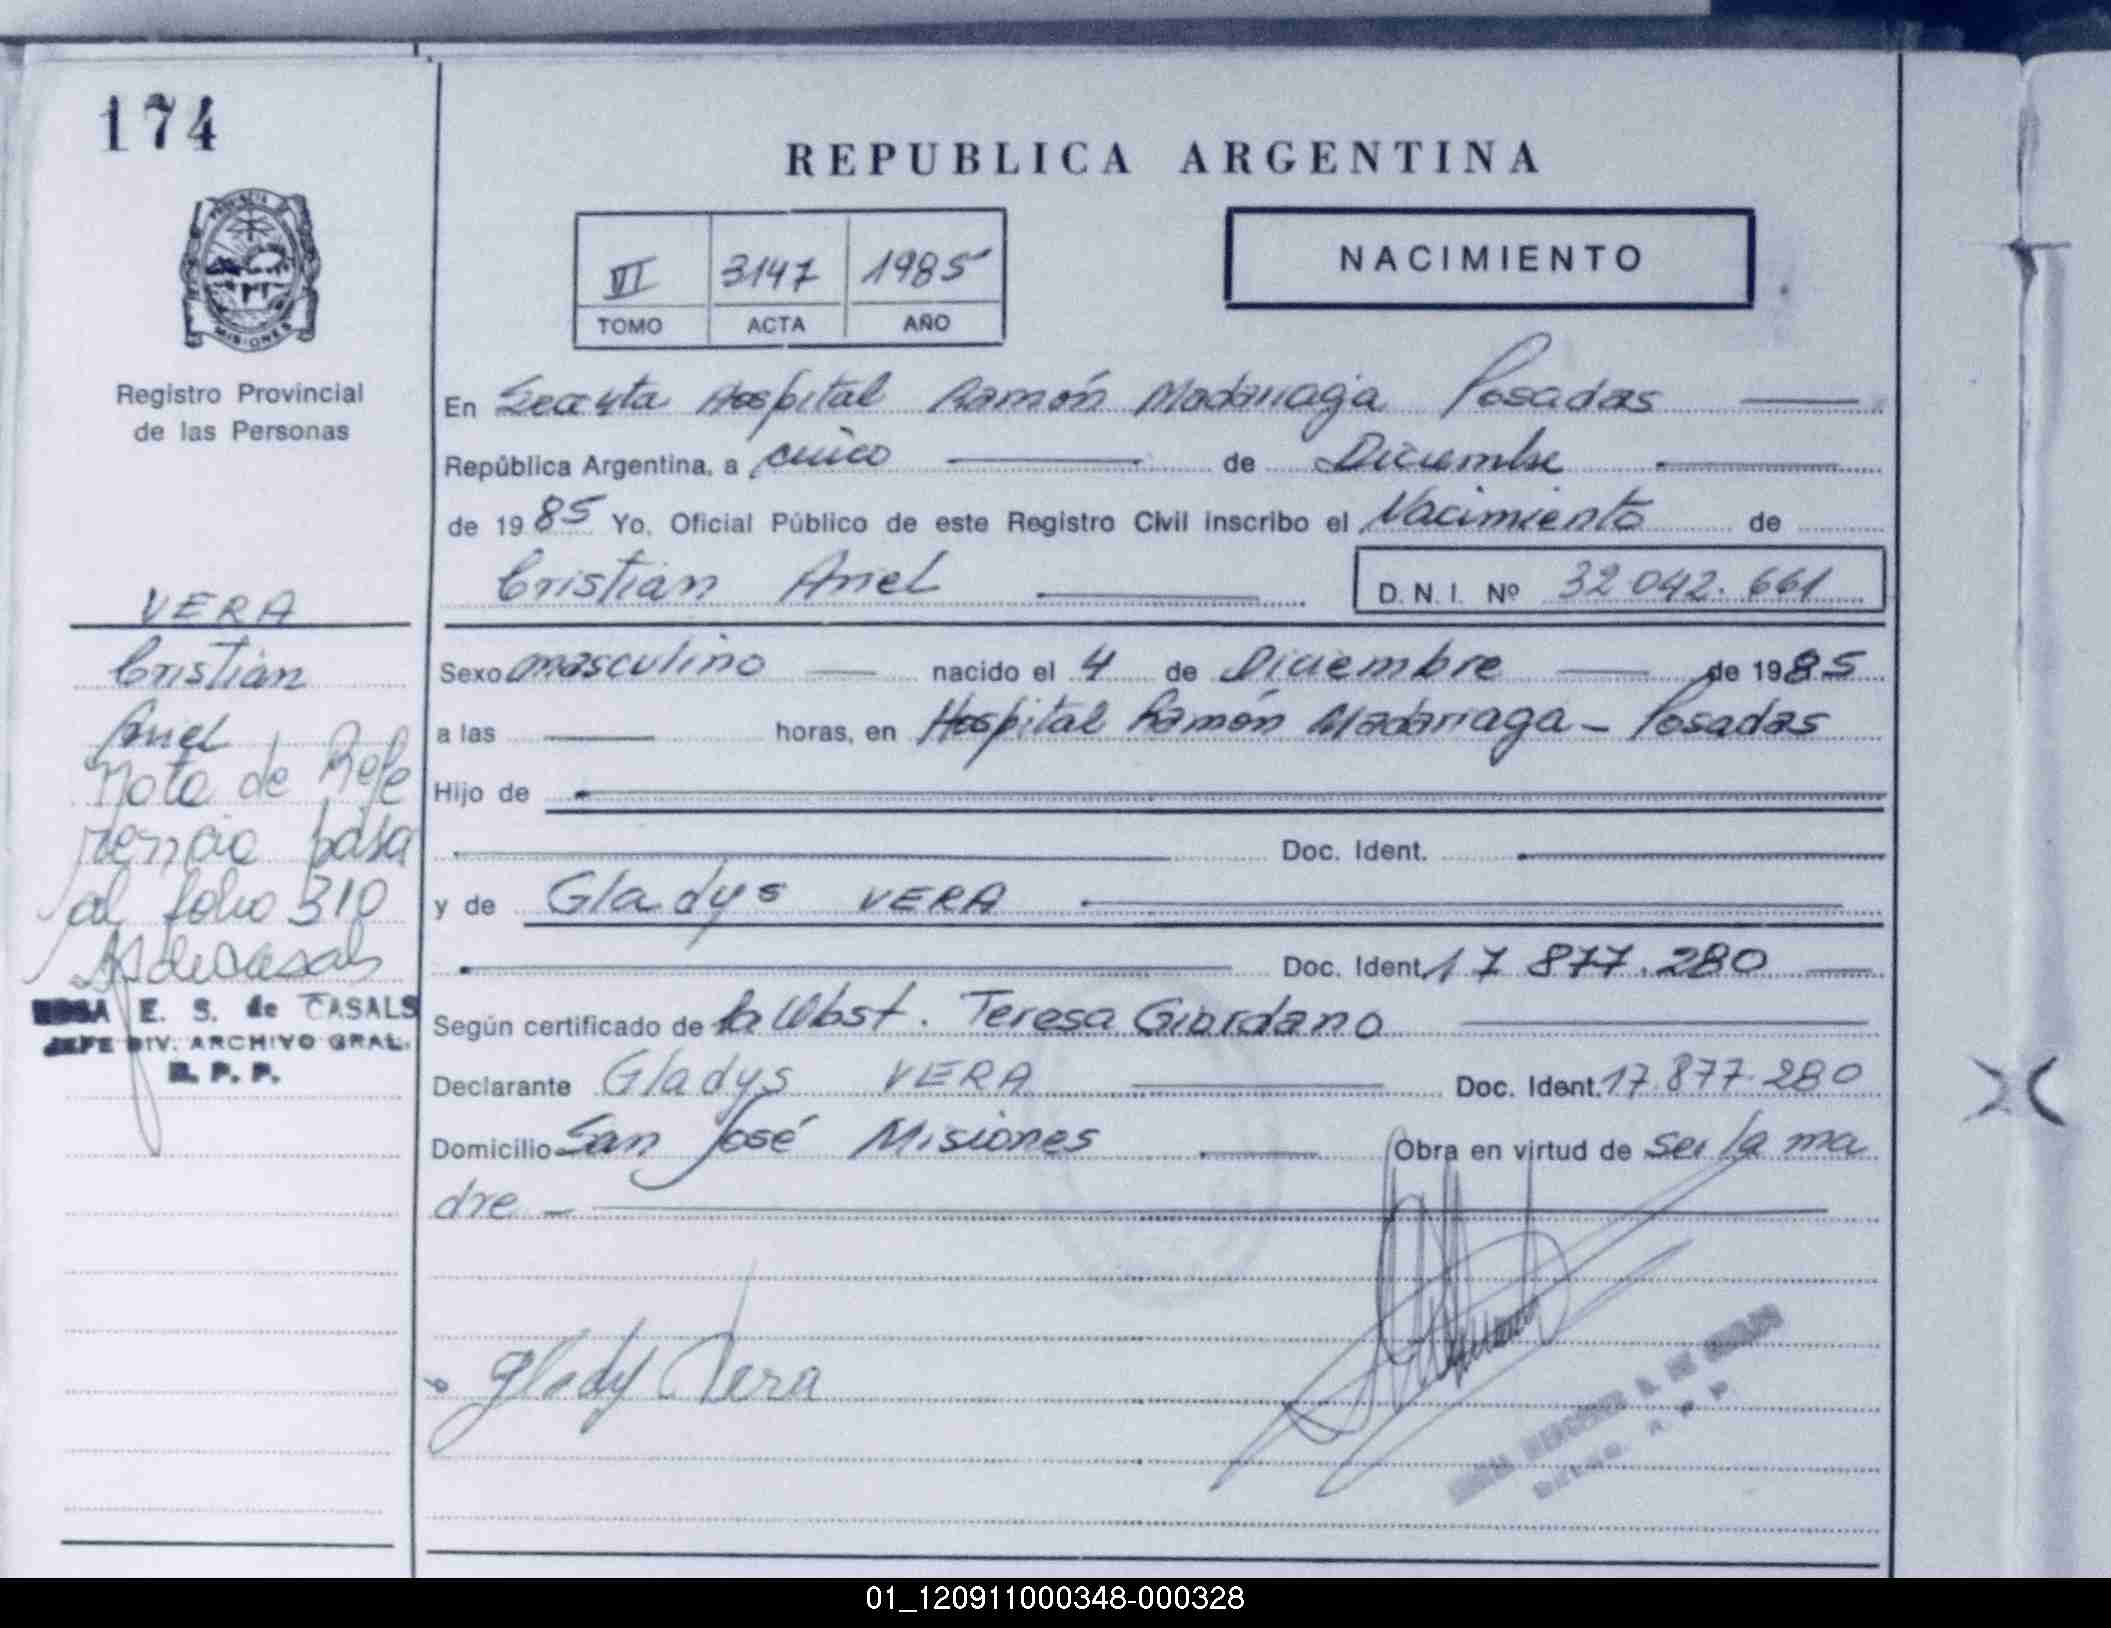 174
REPUBLICA ARGENTINA
VI 3147 1985
TOMO ACTA AÑO
NACIMIENTO
PROVINCIA DE
MISIONES
Registro Provincial
de las Personas
VERA
Cristian
Ariel
Nota de Refe
rencia pasa
al folio 310
E. S. de CASALS
JEFE DIV. ARCHIVO GRAL.
R. P. P.
En Hospital Ramón Madariaga Posadas
República Argentina, a cinco de Diciembre
de 1985 Yo, Oficial Público de este Registro Civil inscribo el Nacimiento de
Cristian Ariel D. N. I. Nº 32 042. 661
Sexo masculino nacido el 4 de Diciembre de 1985
a las horas, en Hospital Ramón Madariaga - Posadas
Hijo de
Doc. Ident.
y de Gladys VERA
Doc. Ident. 17 877. 280
Según certificado de la Obst. Teresa Giordano
Declarante Gladys VERA Doc. Ident. 17.877.280
Domicilio San José Misiones Obra en virtud de ser la ma
dre -
Glady Vera
01_120911000348-000328